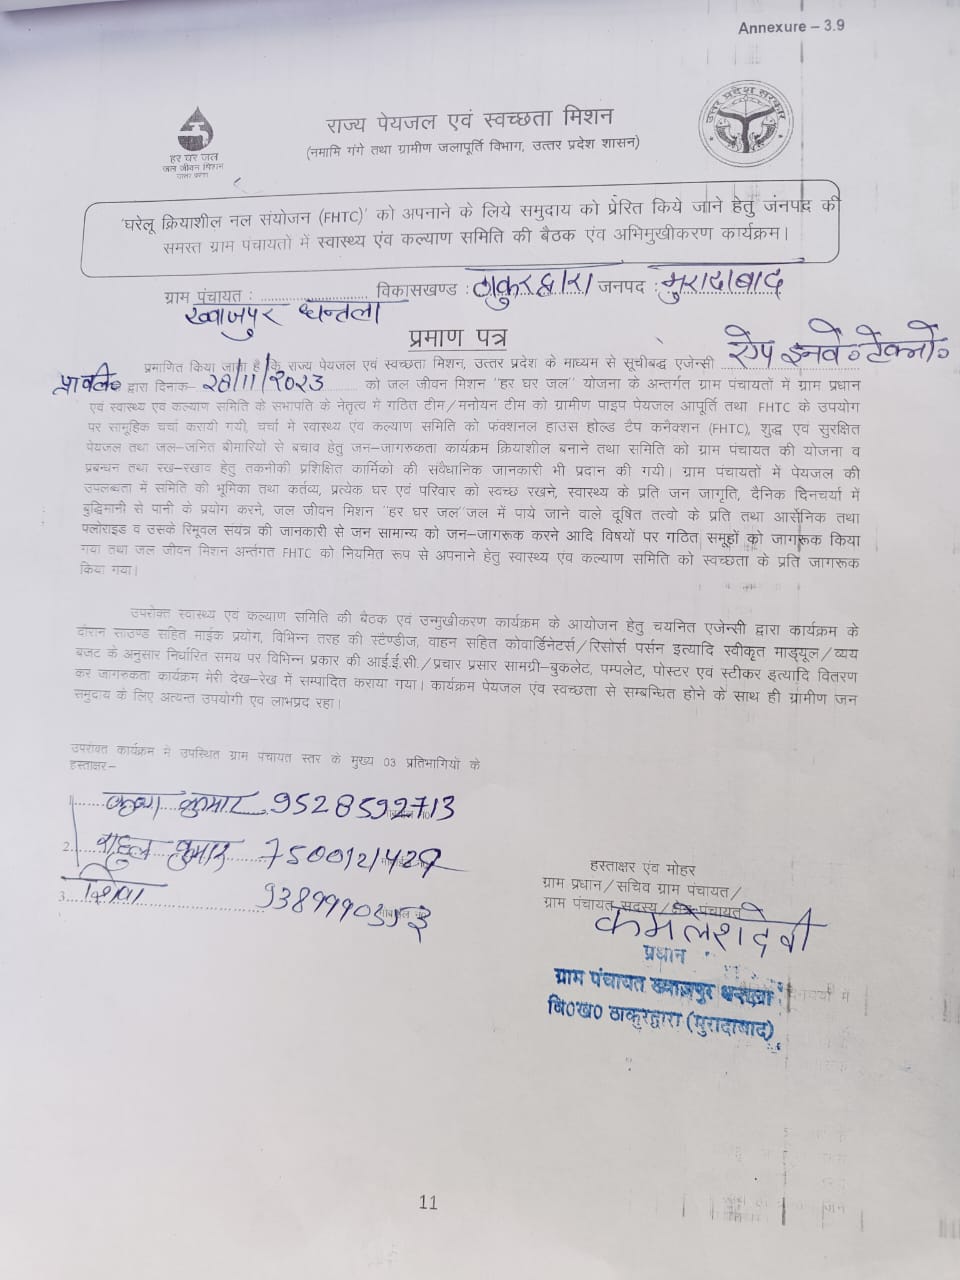 Annexure – 3.9
हर घर जल
जल जीवन मिशन
उत्तर प्रदेश सरकार
राज्य पेयजल एवं स्वच्छता मिशन
(नमामि गंगे तथा ग्रामीण जलापूर्ति विभाग, उत्तर प्रदेश शासन)
'घरेलू क्रियाशील नल संयोजन (FHTC)' को अपनाने के लिये समुदाय को प्रेरित किये जाने हेतु जंनपद की
समस्त ग्राम पंचायतों में स्वास्थ्य एंव कल्याण समिति की बैठक एंव अभिमुखीकरण कार्यक्रम।
ग्राम पंचायत : ख्वाजपुर धन्तला विकासखण्ड : ठाकुरद्वारा जनपद : मुरादाबाद
प्रमाण पत्र
प्रमाणित किया जाता है कि राज्य पेयजल एवं स्वच्छता मिशन, उत्तर प्रदेश के माध्यम से सूचीबद्ध एजेन्सी ऐप इनवे॰ टेक्नो॰
प्रा॰लि॰ द्वारा दिनाक- २८/११/२०२३ को जल जीवन मिशन "हर घर जल" योजना के अन्तर्गत ग्राम पंचायतों में ग्राम प्रधान
एवं स्वास्थ्य एवं कल्याण समिति के सभापति के नेतृत्व में गठित टीम/मनोयन टीम को ग्रामीण पाइप पेयजल आपूर्ति तथा FHTC के उपयोग
पर सामूहिक चर्चा करायी गयी, चर्चा में स्वास्थ्य एंव कल्याण समिति को फंक्शनल हाउस होल्ड टैप कनैक्शन (FHTC), शुद्ध एवं सुरक्षित
पेयजल तथा जल-जनित बीमारियों से बचाव हेतु जन-जागरुकता कार्यक्रम क्रियाशील बनाने तथा समिति को ग्राम पंचायत की योजना व
प्रबन्धन तथा रख-रखाव हेतु तकनीकी प्रशिक्षित कार्मिको की संवैधानिक जानकारी भी प्रदान की गयी। ग्राम पंचायतों में पेयजल की
उपलब्धता में समिति की भूमिका तथा कर्तव्य, प्रत्येक घर एवं परिवार को स्वच्छ रखने, स्वास्थ्य के प्रति जन जागृति, दैनिक दिनचर्या में
बुद्धिमानी से पानी के प्रयोग करने, जल जीवन मिशन "हर घर जल"जल में पाये जाने वाले दूषित तत्वो के प्रति तथा आर्सेनिक तथा
फ्लोराइड व उसके रिमूवल संयत्र की जानकारी से जन सामान्य को जन-जागरूक करने आदि विषयों पर गठित समूहों को जागरूक किया
गया तथा जल जीवन मिशन अर्न्तगत FHTC को नियमित रूप से अपनाने हेतु स्वास्थ्य एंव कल्याण समिति को स्वच्छता के प्रति जागरूक
किया गया।
उपरोक्त स्वास्थ्य एवं कल्याण समिति की बैठक एवं उन्मुखीकरण कार्यक्रम के आयोजन हेतु चयनित एजेन्सी द्वारा कार्यक्रम के
दौरान साउण्ड सहित माईक प्रयोग, विभिन्न तरह की स्टैण्डीज, वाहन सहित कोवार्डिनेटर्स/रिसोर्स पर्सन इत्यादि स्वीकृत माड्यूल/व्यय
बजट के अनुसार निर्धारित समय पर विभिन्न प्रकार की आई.ई.सी./प्रचार प्रसार सामग्री-बुकलेट, पम्पलेट, पोस्टर एवं स्टीकर इत्यादि वितरण
कर जागरुकता कार्यक्रम मेरी देख-रेख में सम्पादित कराया गया। कार्यक्रम पेयजल एंव स्वच्छता से सम्बन्धित होने के साथ ही ग्रामीण जन
समुदाय के लिए अत्यन्त उपयोगी एव लाभप्रद रहा।
उपरोक्त कार्यक्रम में उपस्थित ग्राम पंचायत स्तर के मुख्य 03 प्रतिभागियों के
हस्ताक्षर–
1. कुमार 9528592713
2. राहुल कुमार 7500121429
3. शिवा
हस्ताक्षर एंव मोहर
ग्राम प्रधान/सचिव ग्राम पंचायत/
ग्राम पंचायत सदस्य/क्षेत्र पंचायत
कमलेश देवी
प्रधान
ग्राम पंचायत ख्वाजपुर धन्तला
वि0ख0 ठाकुरद्वारा (मुरादाबाद)
11